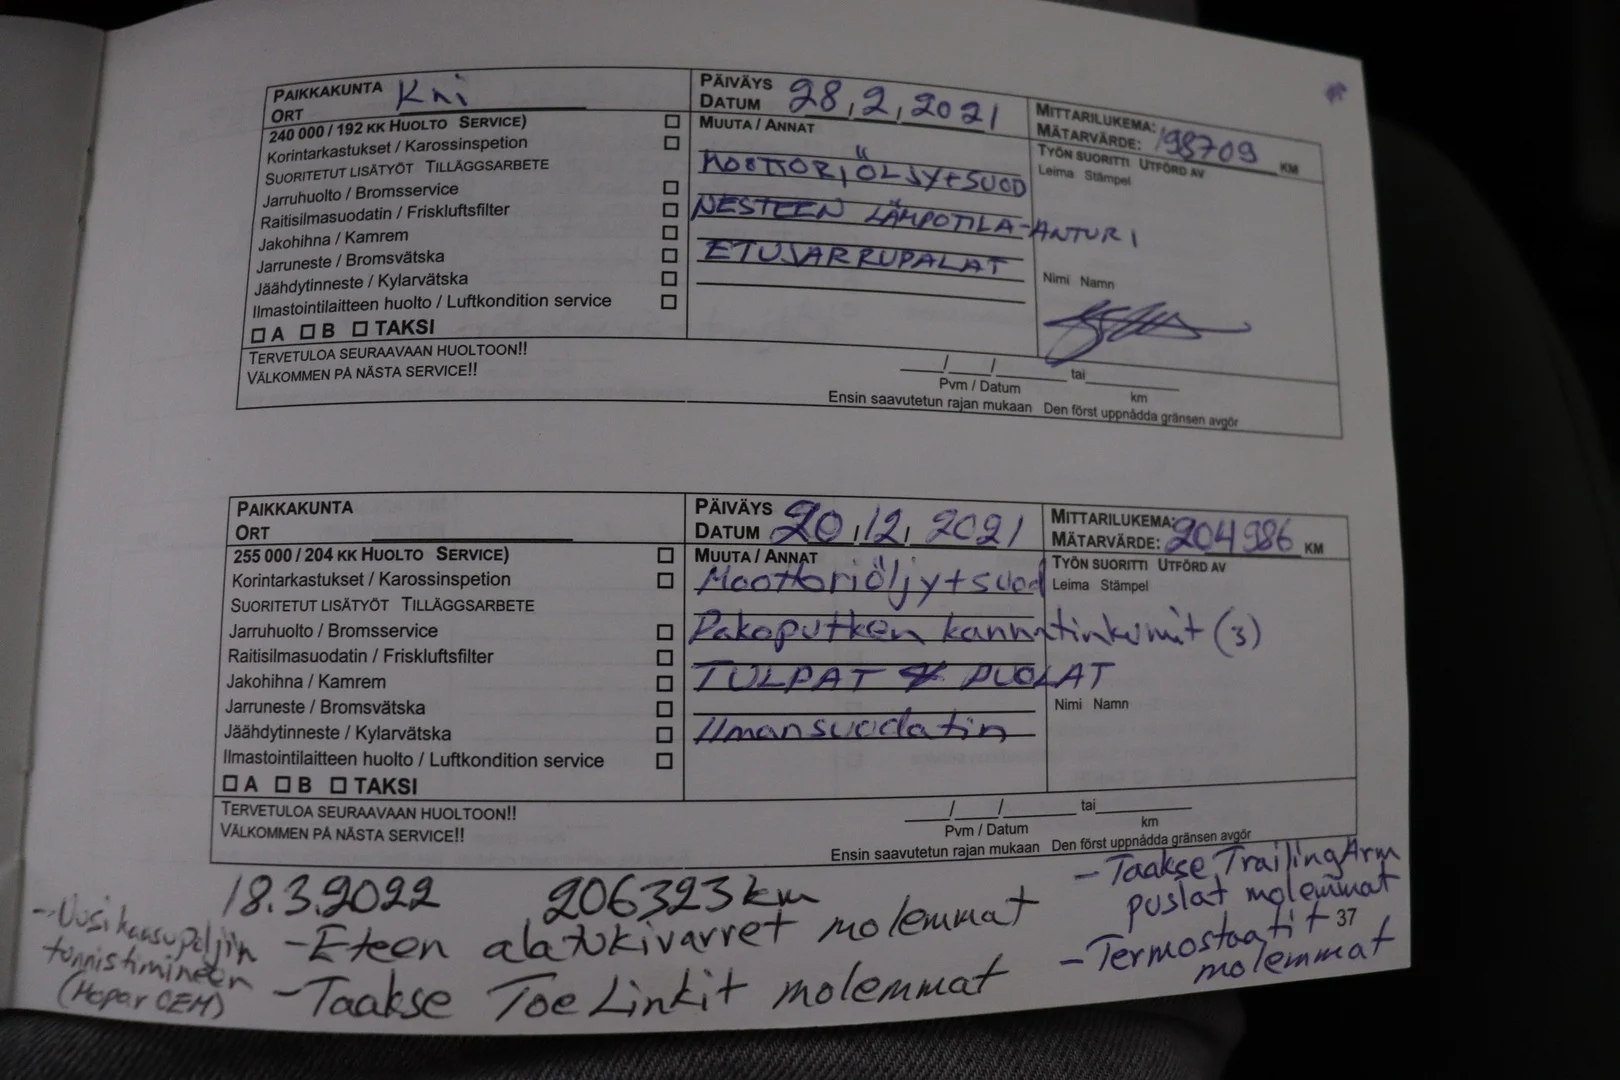 PAIKKAKUNTA Kni
ORT
PÄIVÄYS 28,2,2021
DATUM
MITTARILUKEMA: 198709 KM
MÄTARVÄRDE:
240 000 / 192 KK HUOLTO SERVICE)
Korintarkastukset / Karossinspetion
SUORITETUT LISÄTYÖT TILLÄGGSARBETE
Jarruhuolto / Bromsservice
Raitisilmasuodatin / Friskluftsfilter
Jakohihna / Kamrem
Jarruneste / Bromsvätska
Jäähdytinneste / Kylarvätska
Ilmastointilaitteen huolto / Luftkondition service
A B TAKSI
MUUTA / ANNAT
MOOTTORIÖLJY+SUOD
NESTEEN LÄMPÖTILA-ANTURI
ETUJARRUPALAT
TYÖN SUORITTI UTFÖRD AV
Leima Stämpel
Nimi Namn
TERVETULOA SEURAAVAAN HUOLTOON!!
VÄLKOMMEN PÅ NÄSTA SERVICE!!
/ / tai
Pvm / Datum km
Ensin saavutetun rajan mukaan Den först uppnådda gränsen avgör
PAIKKAKUNTA
ORT
PÄIVÄYS 20,12,2021
DATUM
MITTARILUKEMA: 204986 KM
MÄTARVÄRDE:
255 000 / 204 KK HUOLTO SERVICE)
Korintarkastukset / Karossinspetion
SUORITETUT LISÄTYÖT TILLÄGGSARBETE
Jarruhuolto / Bromsservice
Raitisilmasuodatin / Friskluftsfilter
Jakohihna / Kamrem
Jarruneste / Bromsvätska
Jäähdytinneste / Kylarvätska
Ilmastointilaitteen huolto / Luftkondition service
A B TAKSI
MUUTA / ANNAT
Moottoriöljy+suod
Pakoputken kannatinkumit (3)
TULPAT & PUOLAT
Ilmansuodatin
TYÖN SUORITTI UTFÖRD AV
Leima Stämpel
Nimi Namn
TERVETULOA SEURAAVAAN HUOLTOON!!
VÄLKOMMEN PÅ NÄSTA SERVICE!!
/ / tai
Pvm / Datum km
Ensin saavutetun rajan mukaan Den först uppnådda gränsen avgör
18.3.2022 206323km
-Uusi kaasupoljin
tunnistimineen
(Mopar OEM)
-Eteen alatukivarret molemmat
-Taakse Toe Linkit molemmat
-Taakse TrailingArm
puslat molemmat
-Termostaatit
molemmat
37